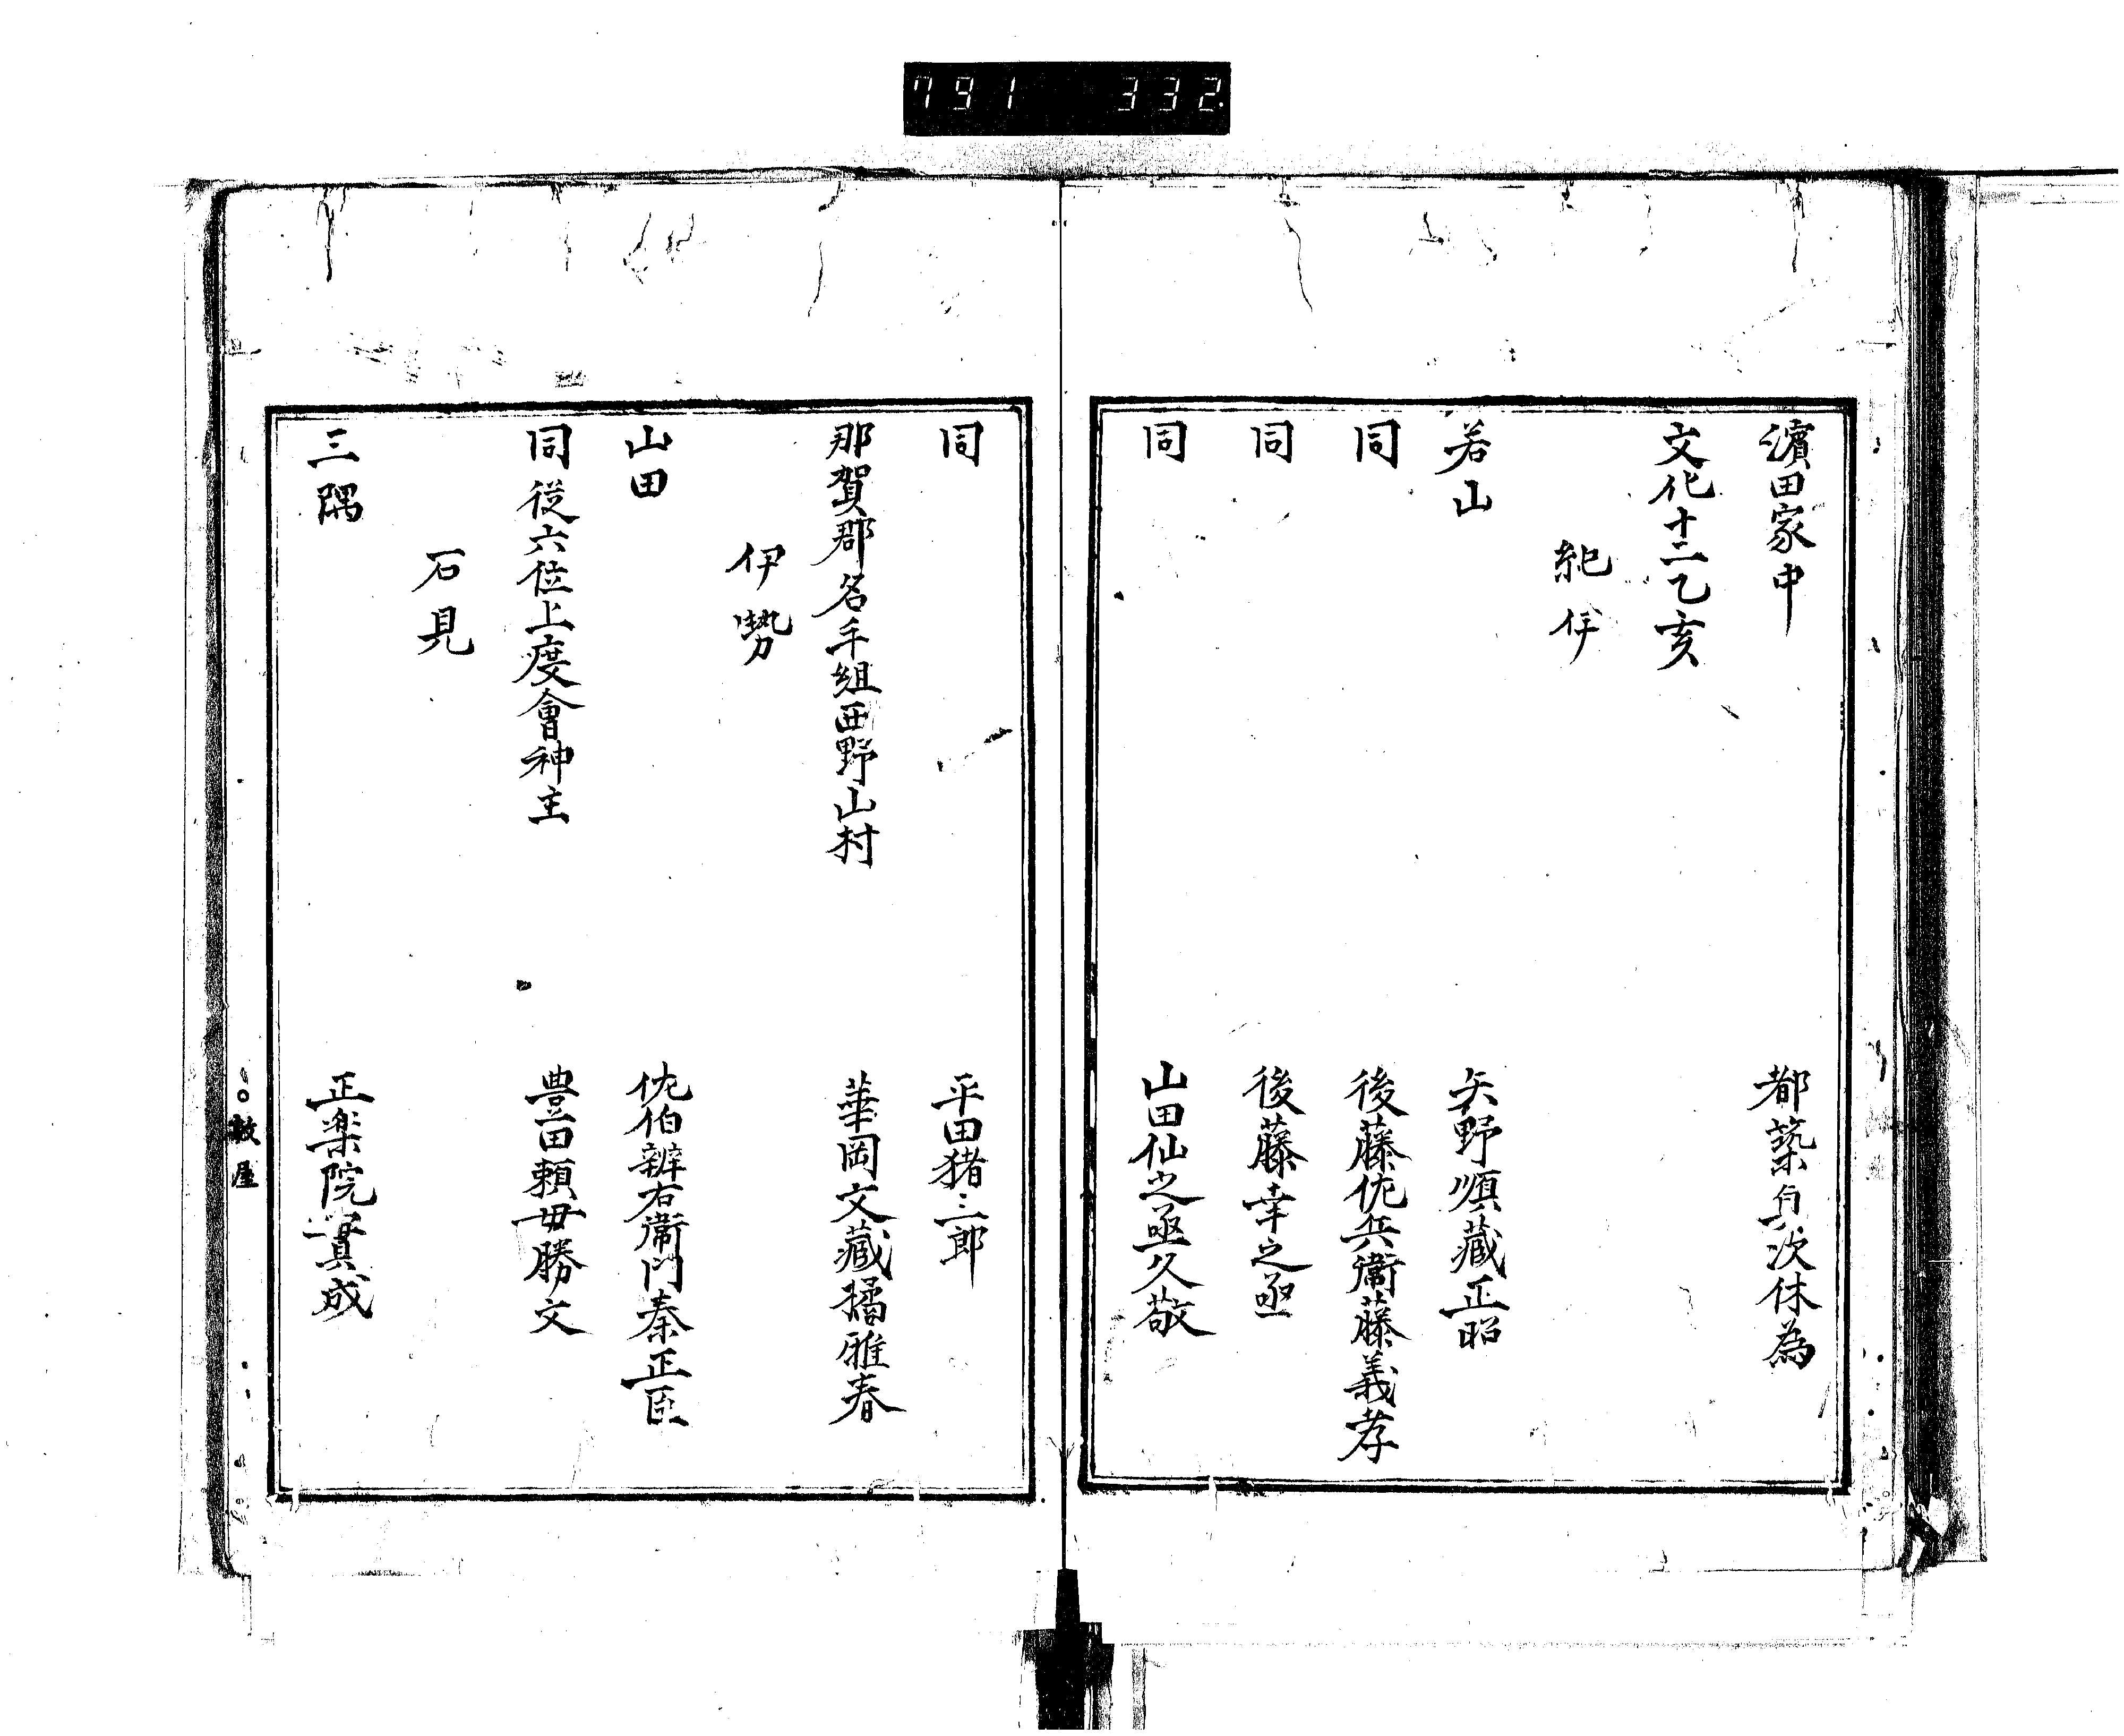 791 332
濱田家中 都築自次休為
文化十二乙亥
紀伊
若山 矢野順藏正昭
同 後藤佐兵衛藤義孝
同 後藤幸之亟
同 山田仙之亟久敬
同 平田猪三郎
那賀郡名手組西野山村 華岡文藏橘雅春
伊勢
山田 佐伯辧右衛門秦正臣
同從六位上度會神主 豊田頼母勝文
石見
三隅 正楽院實成
敷屋